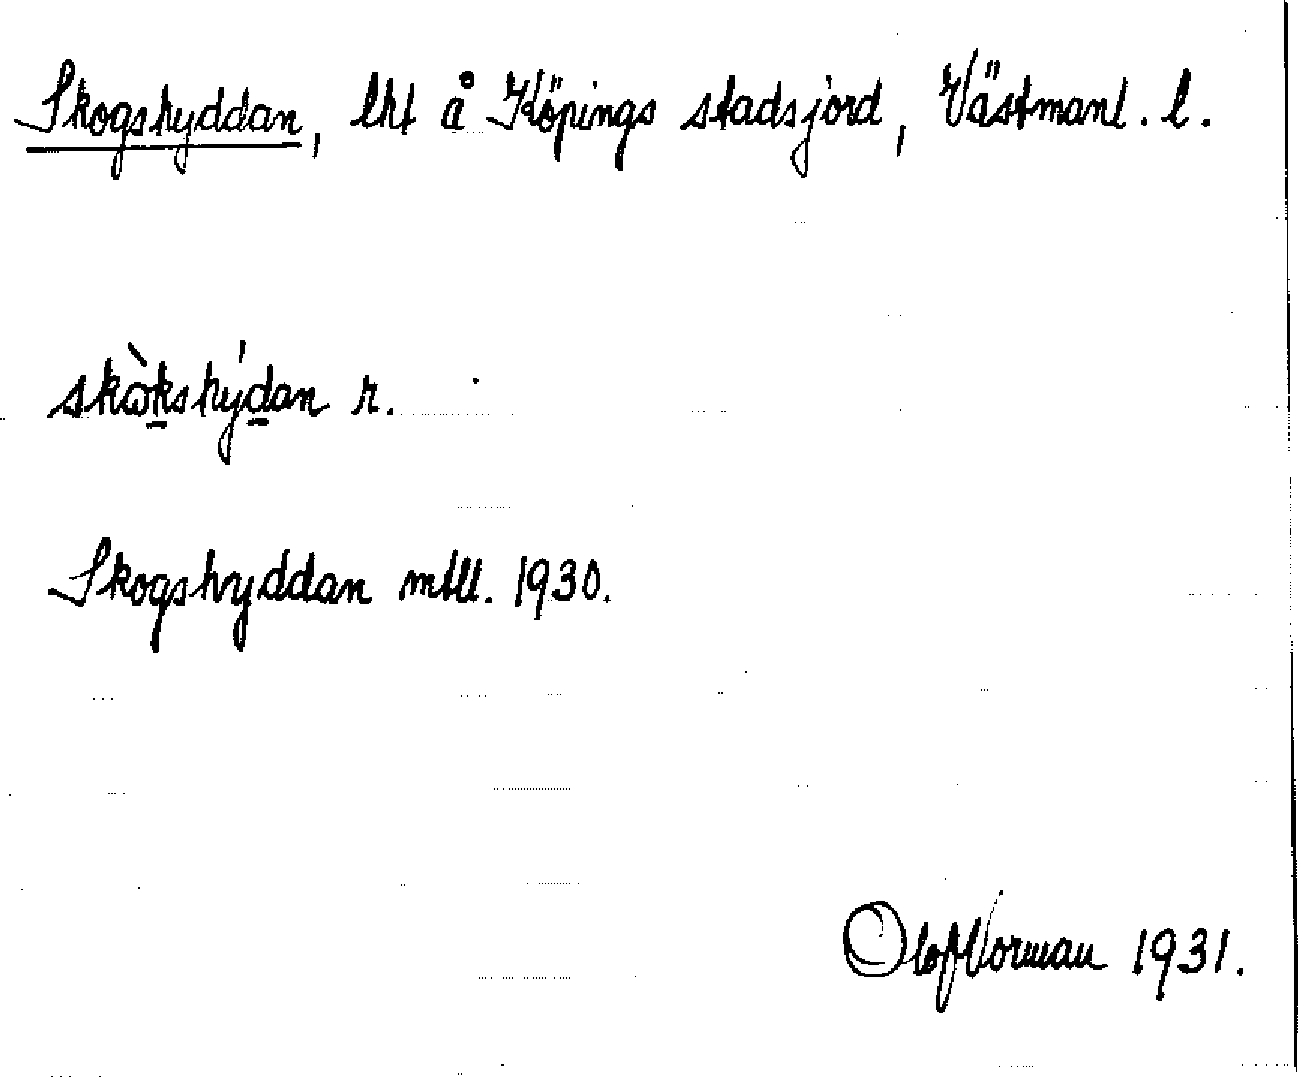 Skogshyddan, lht å Köpings stadsjord, Västmanl. l.
skò̀kshýdan r.
Skogshyddan mtll. 1930.
Olof Norman 1931.